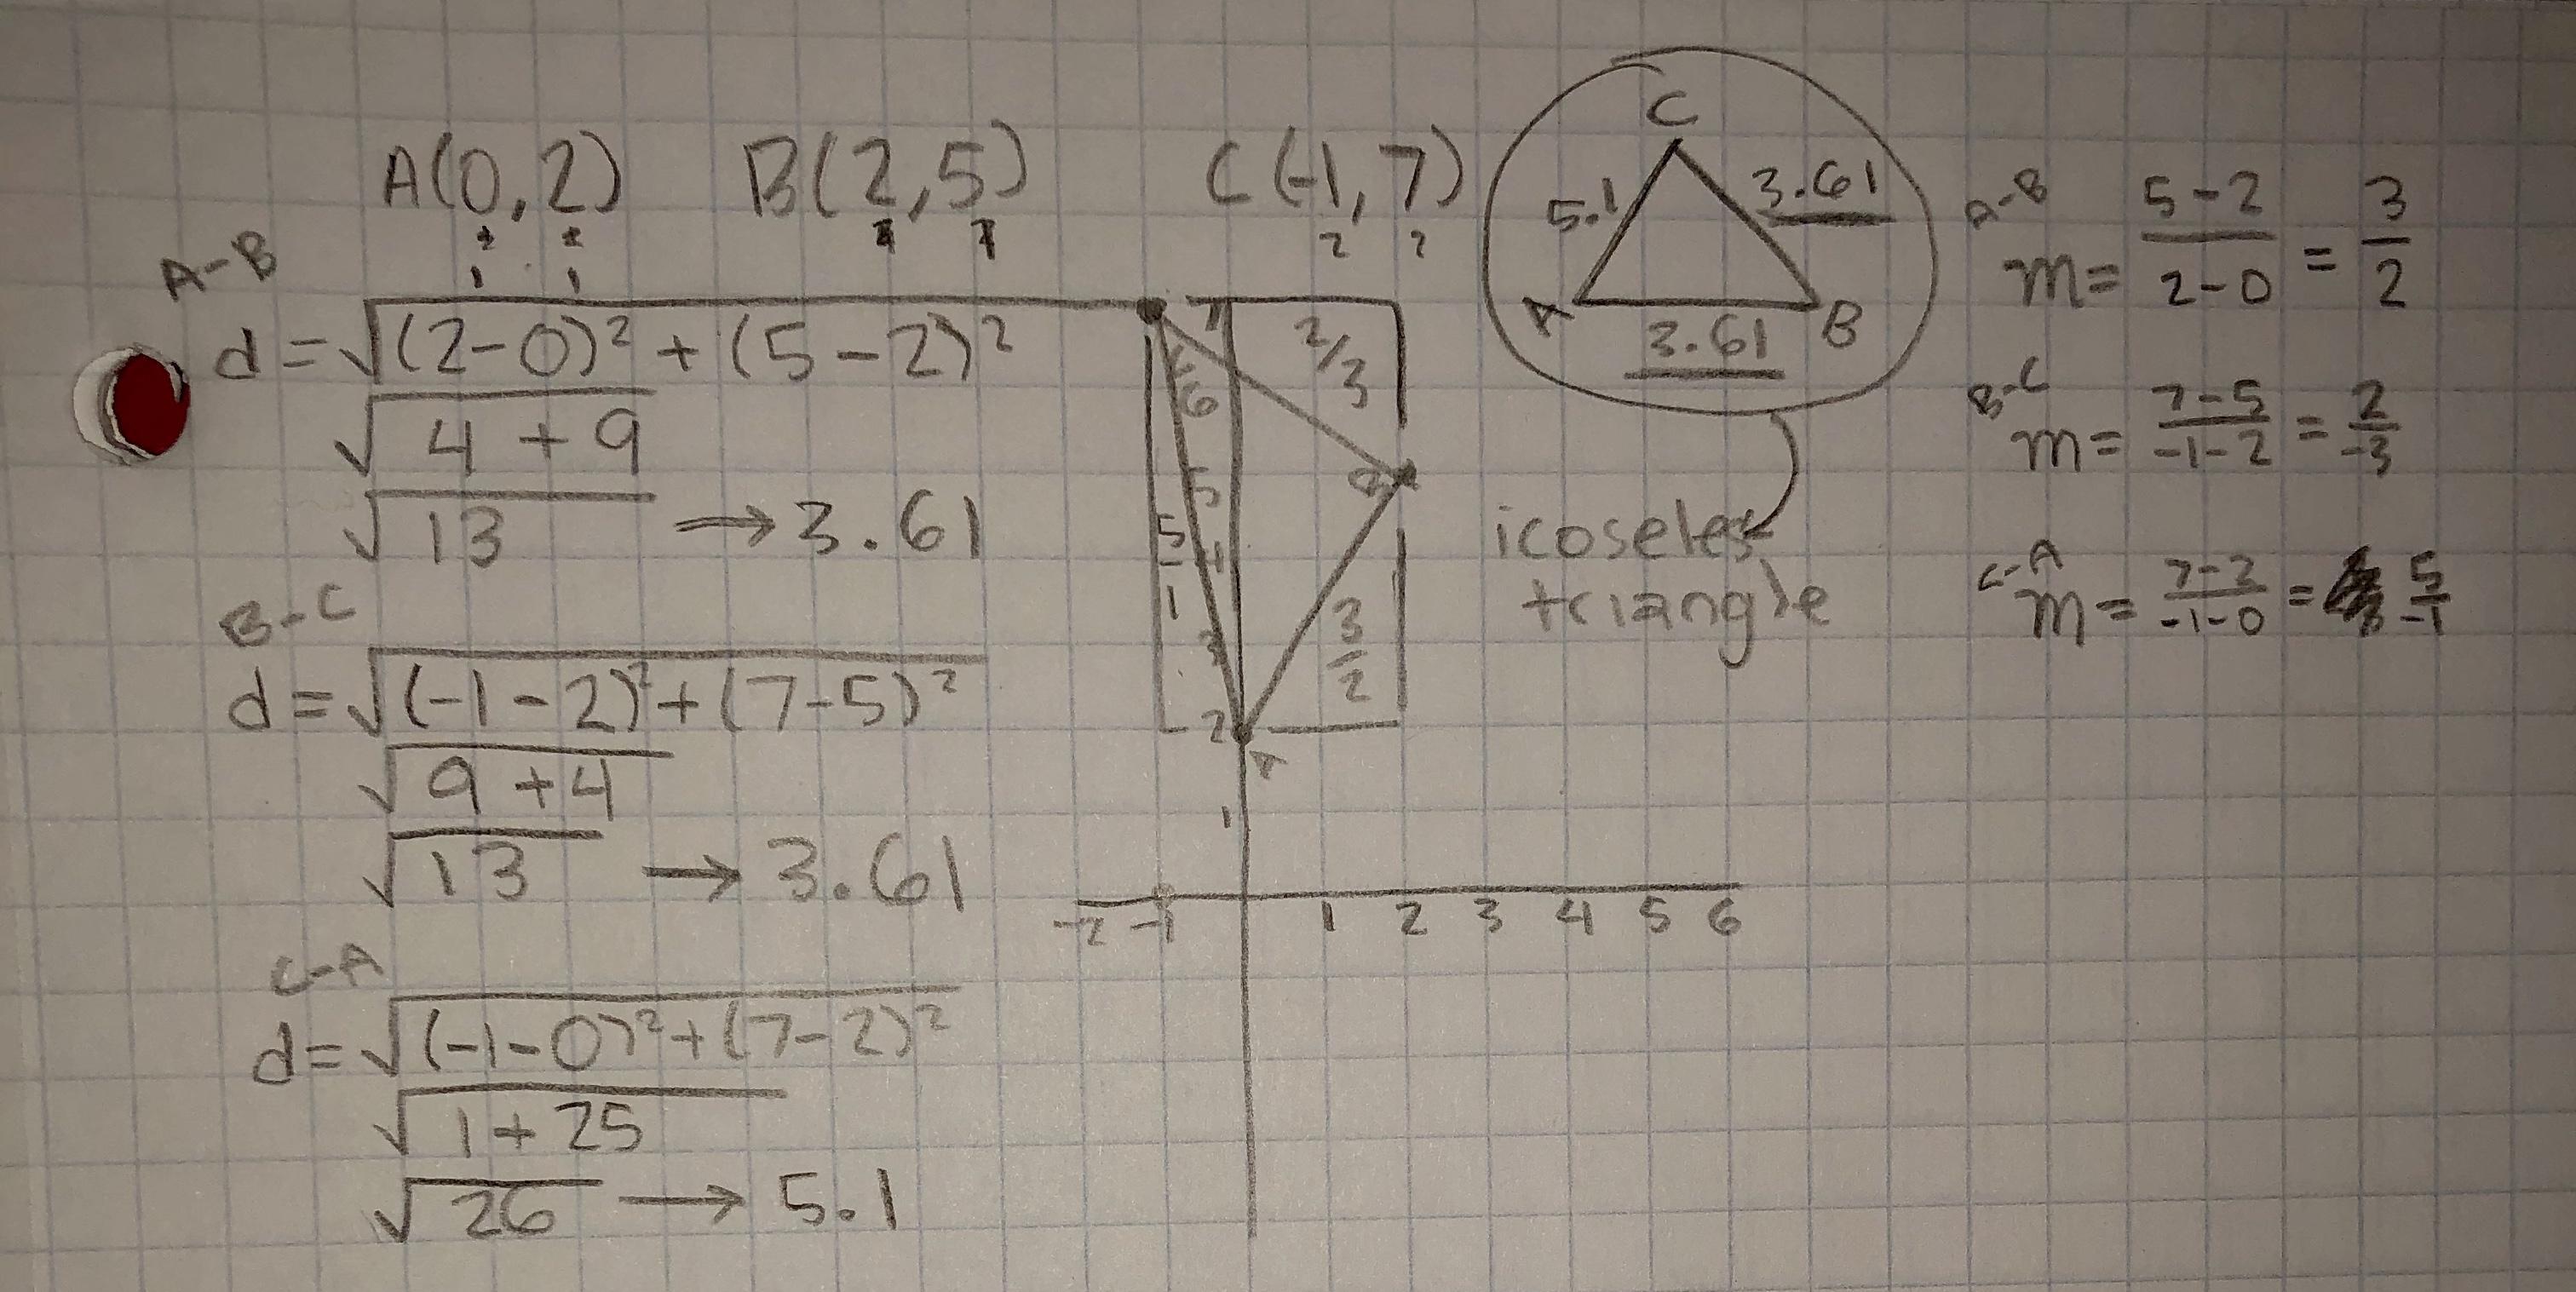 A(0,2) B(2,5) C(-1,7)
A-B
d=√(2-0)²+(5-2)²
√4+9
√13 → 3.61
B-C
d=√(-1-2)²+(7-5)²
√9+4
√13 → 3.61
C-A
d=√(-1-0)²+(7-2)²
√1+25
√26 → 5.1
7
2/3
6
5
5/1
3
3/2
2
A
1
-2 -1 1 2 3 4 5 6
C
5.1 3.61
A B
3.61
icoseles
triangle
A-B
m= 5-2/2-0 = 3/2
B-C
m= 7-5/-1-2 = 2/-3
C-A
m= 7-2/-1-0 = 5/-1